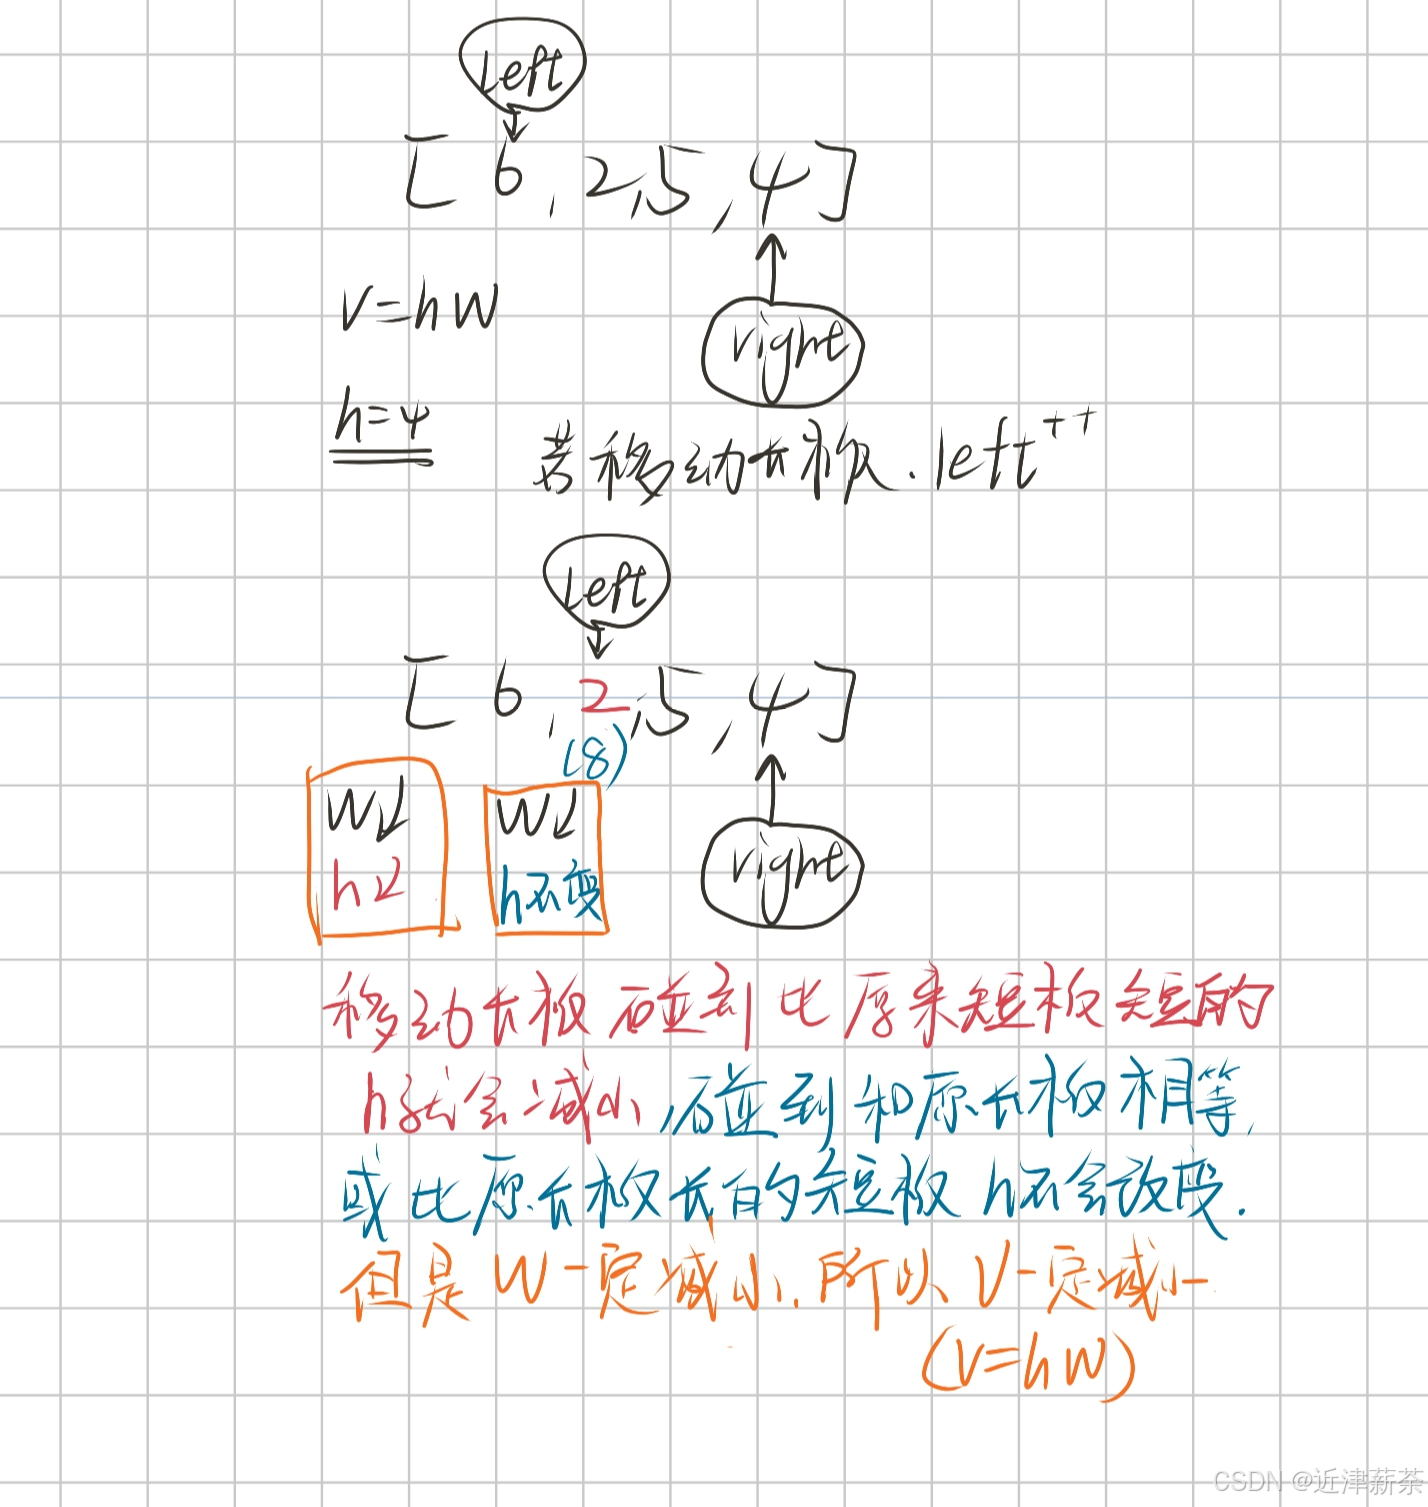 left
[6,2,5,4]
V=hW
right
h=4
若移动长板.left++
left
[6,2,5,4]
(8)
W↓
h↓
W↓
h不变
right
移动长板碰到比原来短板短的
h就会减小,碰到和原长板相等,
或比原长板长的短板h不会改变.
但是W一定减小.所以V一定减小
(V=hW)
CSDN @近津薪荼